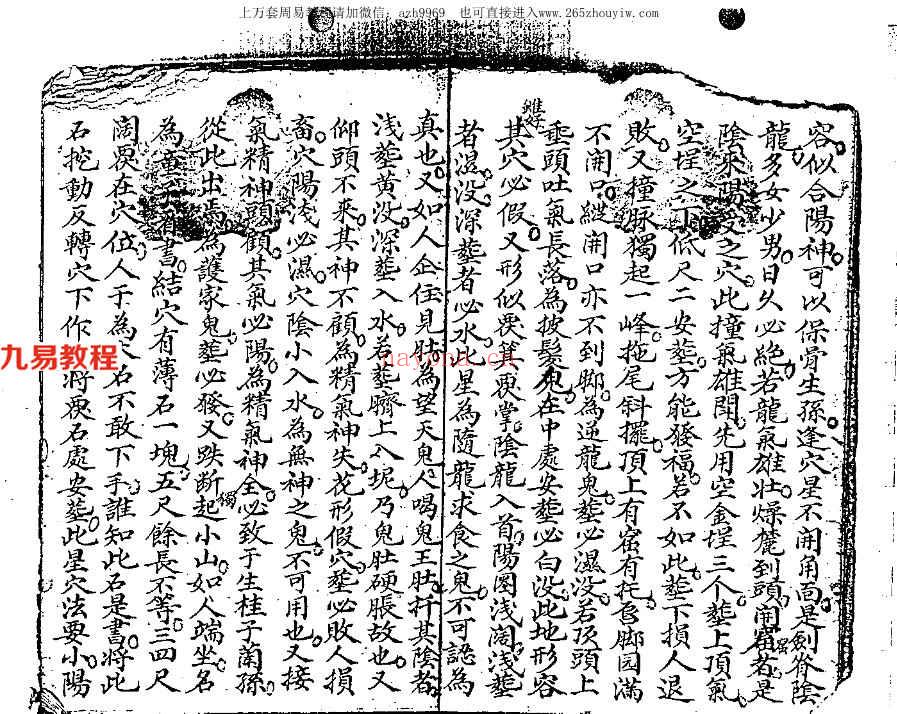 上万套周易 请加微信：azh9969 也可直接进入www.265zhouyiw.com
容似合陽神可以保骨生孫逢穴星不開角面是劍脊陰
龍多女少男日久必絕若龍氣雄壯燥麄到頭開窩者是
陰來陽受之穴此撞氣雄閗先用空金埕三个塟上頂氣
空埕之下低尺二安塟方能發福若不如此塟下損人退
敗又撞脉獨起一峰拖尾斜擺頂上有窩有托唇脚园滿
不開口縱開口亦不到脚為逆龍鬼塟必濕没若孩頭上
垂頭吐氣長落為披髮鬼在中處安塟必白没此地形容
其穴必假又形似 陰龍入首陽圈浅闊浅塟
者濕没深塟者必水 星為隨龍求食之鬼不可認為
真也又如人企住見肚為望天鬼人喝鬼王肚扦其陰者
浅塟黄没深塟入水若塟臍上入坭乃鬼肚硬脹故也又
仰頭不來其神不顧為精氣神失花形假穴塟必敗人損
畜穴陽浅必濕穴陰小入水為無神之鬼不可用也又接
氣精神頭顧其氣必陽為精氣神全必致于生桂子蘭孫
從此出焉為護家鬼塟必發又跌断起小山如人端坐名
為童子看書結穴有薄石一塊五尺餘長不等三四尺
闊要在穴位人于為 石不敢下手誰知此石是書將此
石挖動反轉穴下作 將 石處安塟此星穴法要小陽
九易教程
nayona.cn